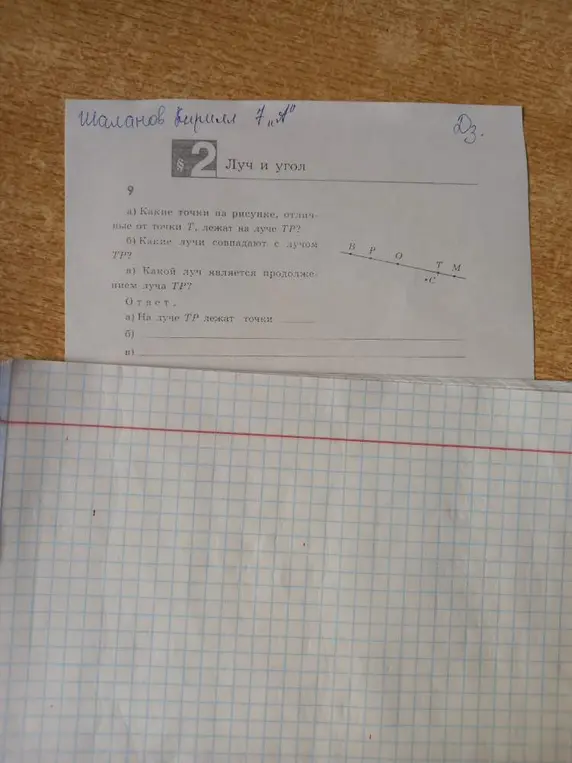 Шаланов Кирилл 7 „А"
Дз.
§ 2 Луч и угол
9
а) Какие точки на рисунке, отлич-
ные от точки T, лежат на луче TP?
б) Какие лучи совпадают с лучом
TP?
в) Какой луч является продолже-
нием луча TP?
Ответ.
а) На луче TP лежат точки
б)
в)
B P O T M
C